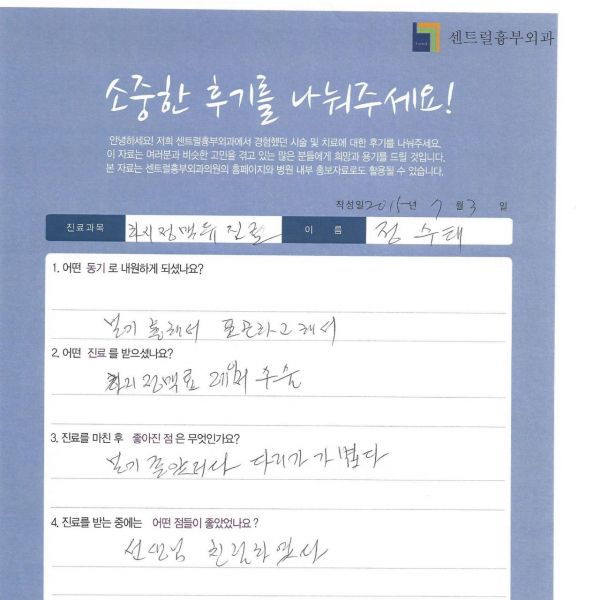 센트럴흉부외과
소중한 후기를 나눠주세요!
안녕하세요! 저희 센트럴흉부외과에서 경험했던 시술 및 치료에 대한 후기를 나눠주세요.
이 자료는 여러분과 비슷한 고민을 겪고 있는 많은 분들에게 희망과 용기를 드릴 것입니다.
본 자료는 센트럴흉부외과의원의 홈페이지와 병원 내부 홍보자료로도 활용될 수 있습니다.
작성일 2015년 7 월 3 일
진료과목 하지정맥류 진료 이 름 정 수태
1. 어떤 동기 로 내원하게 되셨나요?
보기 흉해서
2. 어떤 진료 를 받으셨나요?
하지정맥료 레이저 수술
3. 진료를 마친 후 좋아진 점 은 무엇인가요?
보기 다리가 가볍다
4. 진료를 받는 중에는 어떤 점들이 좋았었나요?
선생님 친절하였사